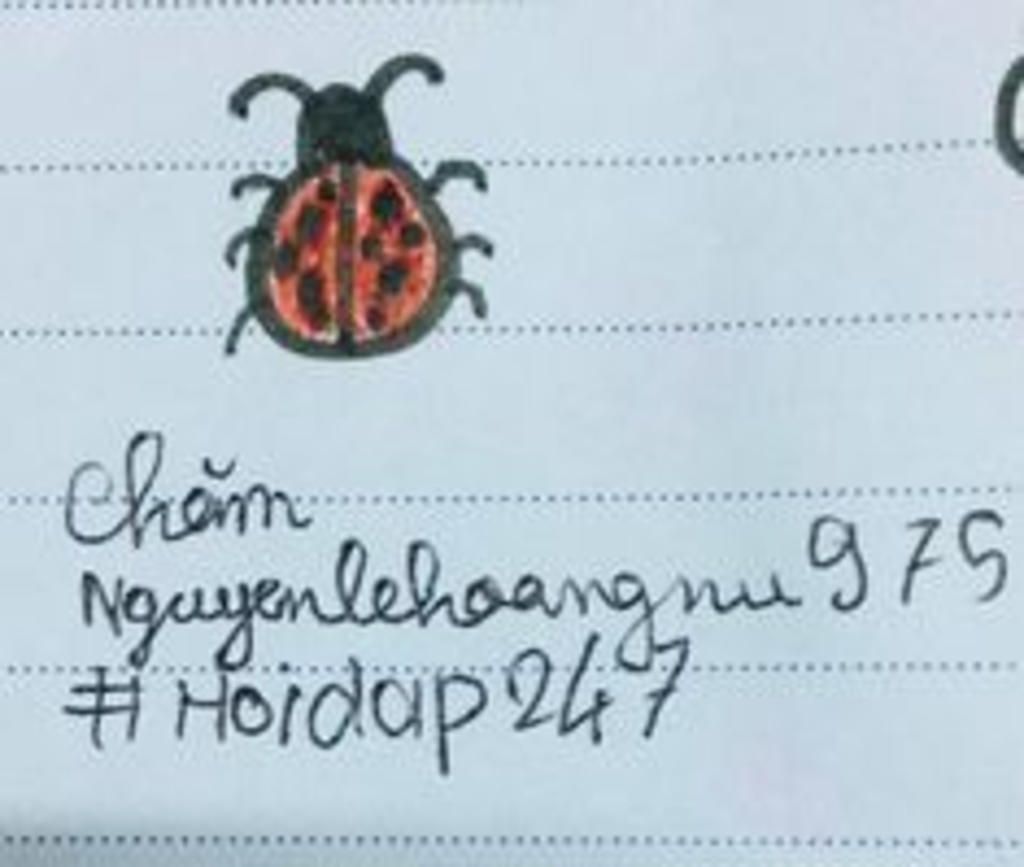 Chăm
Nguyenlehoangnu975
#Hoidap247